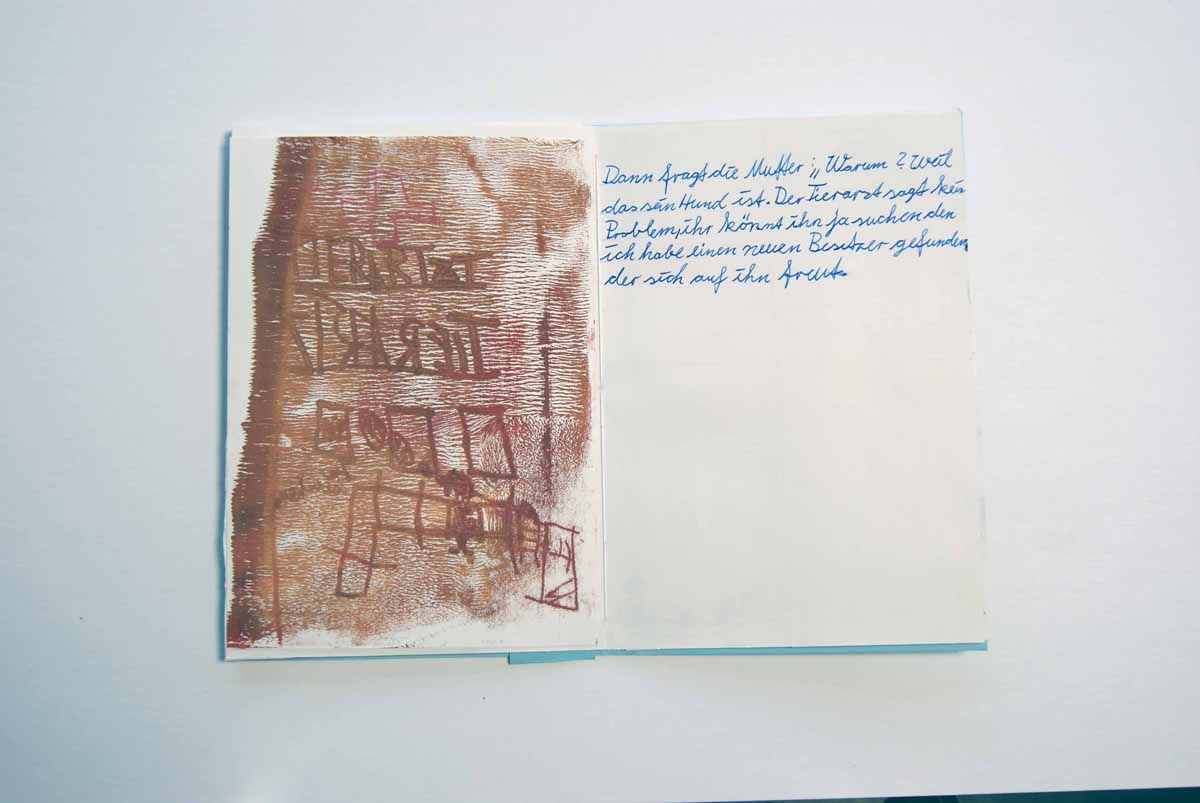 TIERARTZT
TIERARZT
Dann fragt die Mutter:„Warum? Weil
das sein Hund ist. Der Tierarzt sagt kein
Problem, ihr könnt ihn ja suchen den
ich habe einen neuen Besitzer gefunden
der sich auf ihn freut.